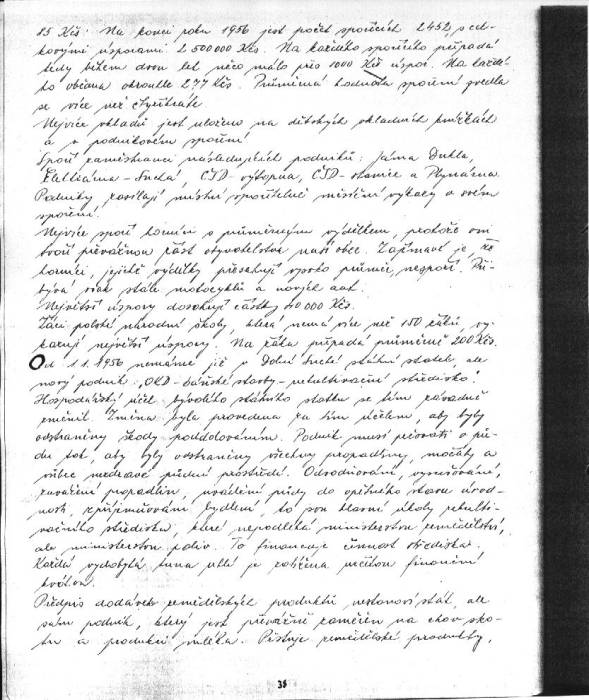 85 Kčs. Na konci roku 1956 jest počet spořících 2452, s cel-
kovými úsporami 2 500 000 Kčs. Na každého spořícího připadá
tedy během dvou let něco málo přes 1000 Kčs úspor. Na každé-
ho občana okrouhle 277 Kčs. Průměrná hodnota spoření zvedla
se více než čtyřikráte.
Nejvíce vkladů jest uloženo na dětských vkladních knížkách
a v podnikovém spoření.
Spoří zaměstnanci následujících podniků: Jáma Dukla,
elektrárna - Suchá, ČSD - výtopna, ČSD - stanice a Plynárna.
Podniky zasílají místní spořitelně měsíční výkazy o svém
spoření.
Nejvíce spoří horníci s průměrným výdělkem, protože oni
tvoří převážnou část obyvatelstva naší obce. Zajímavé je, že
horníci, jejichž výdělky přesahují vysoko průměr, nespoří. Při-
bývá však stále motocyklů a nových aut.
Největší úspory dosahují částky 40 000 Kčs.
Žáci polské národní školy, která nemá více než 150 žáků, vy-
kazují největší úspory. Na žáka připadá průměrně 200 Kčs.
Od 1.1.1956 nemáme již v Dolní Suché státní statek, ale
nový podnik: "OKD - báňské stavby - rekultivační středisko".
Hospodářský účel bývalého státního statku se tím závadně
změnil. Změna byla provedena za tím účelem, aby byly
odstraněny škody poddolováním. Podnik musí pečovati o pů-
du tak, aby byly odstraněny všechny propadliny, močály a
vůbec nezdravé půdní prostředí. Odvodňování, vysušování,
zavážení propadlin, uvádění půdy do opětného stavu úrod-
nosti, zpříjemňování bydlení, to jsou hlavní úkoly rekulti-
vačního střediska, které nepodléhá ministerstvu zemědělství,
ale ministerstvu paliv. To financuje činnost střediska.
Každá vydobytá tuna uhlí je zatížena určitou finanční
kvótou.
Předpis dodávek zemědělských produktů nestanoví stát, ale
sám podnik, který jest převážně zaměřen na chov sko-
tu a produkci mléka. Pěstuje zemědělské produkty,
38